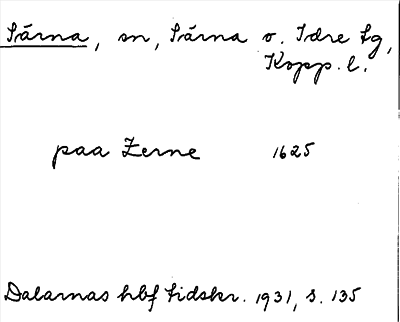 Särna, sn, Särna o. Idre tg,
Kopp. l.
paa Zerne 1625
Dalarnas hbf tidskr. 1931, s. 135